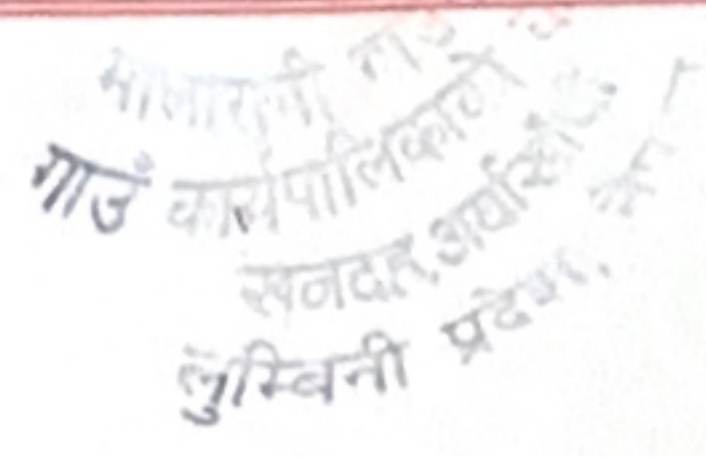 मालारानी गाउँ
गाउँ कार्यपालिकाको
खनदह, अर्घाखाँची
लुम्बिनी प्रदेश,